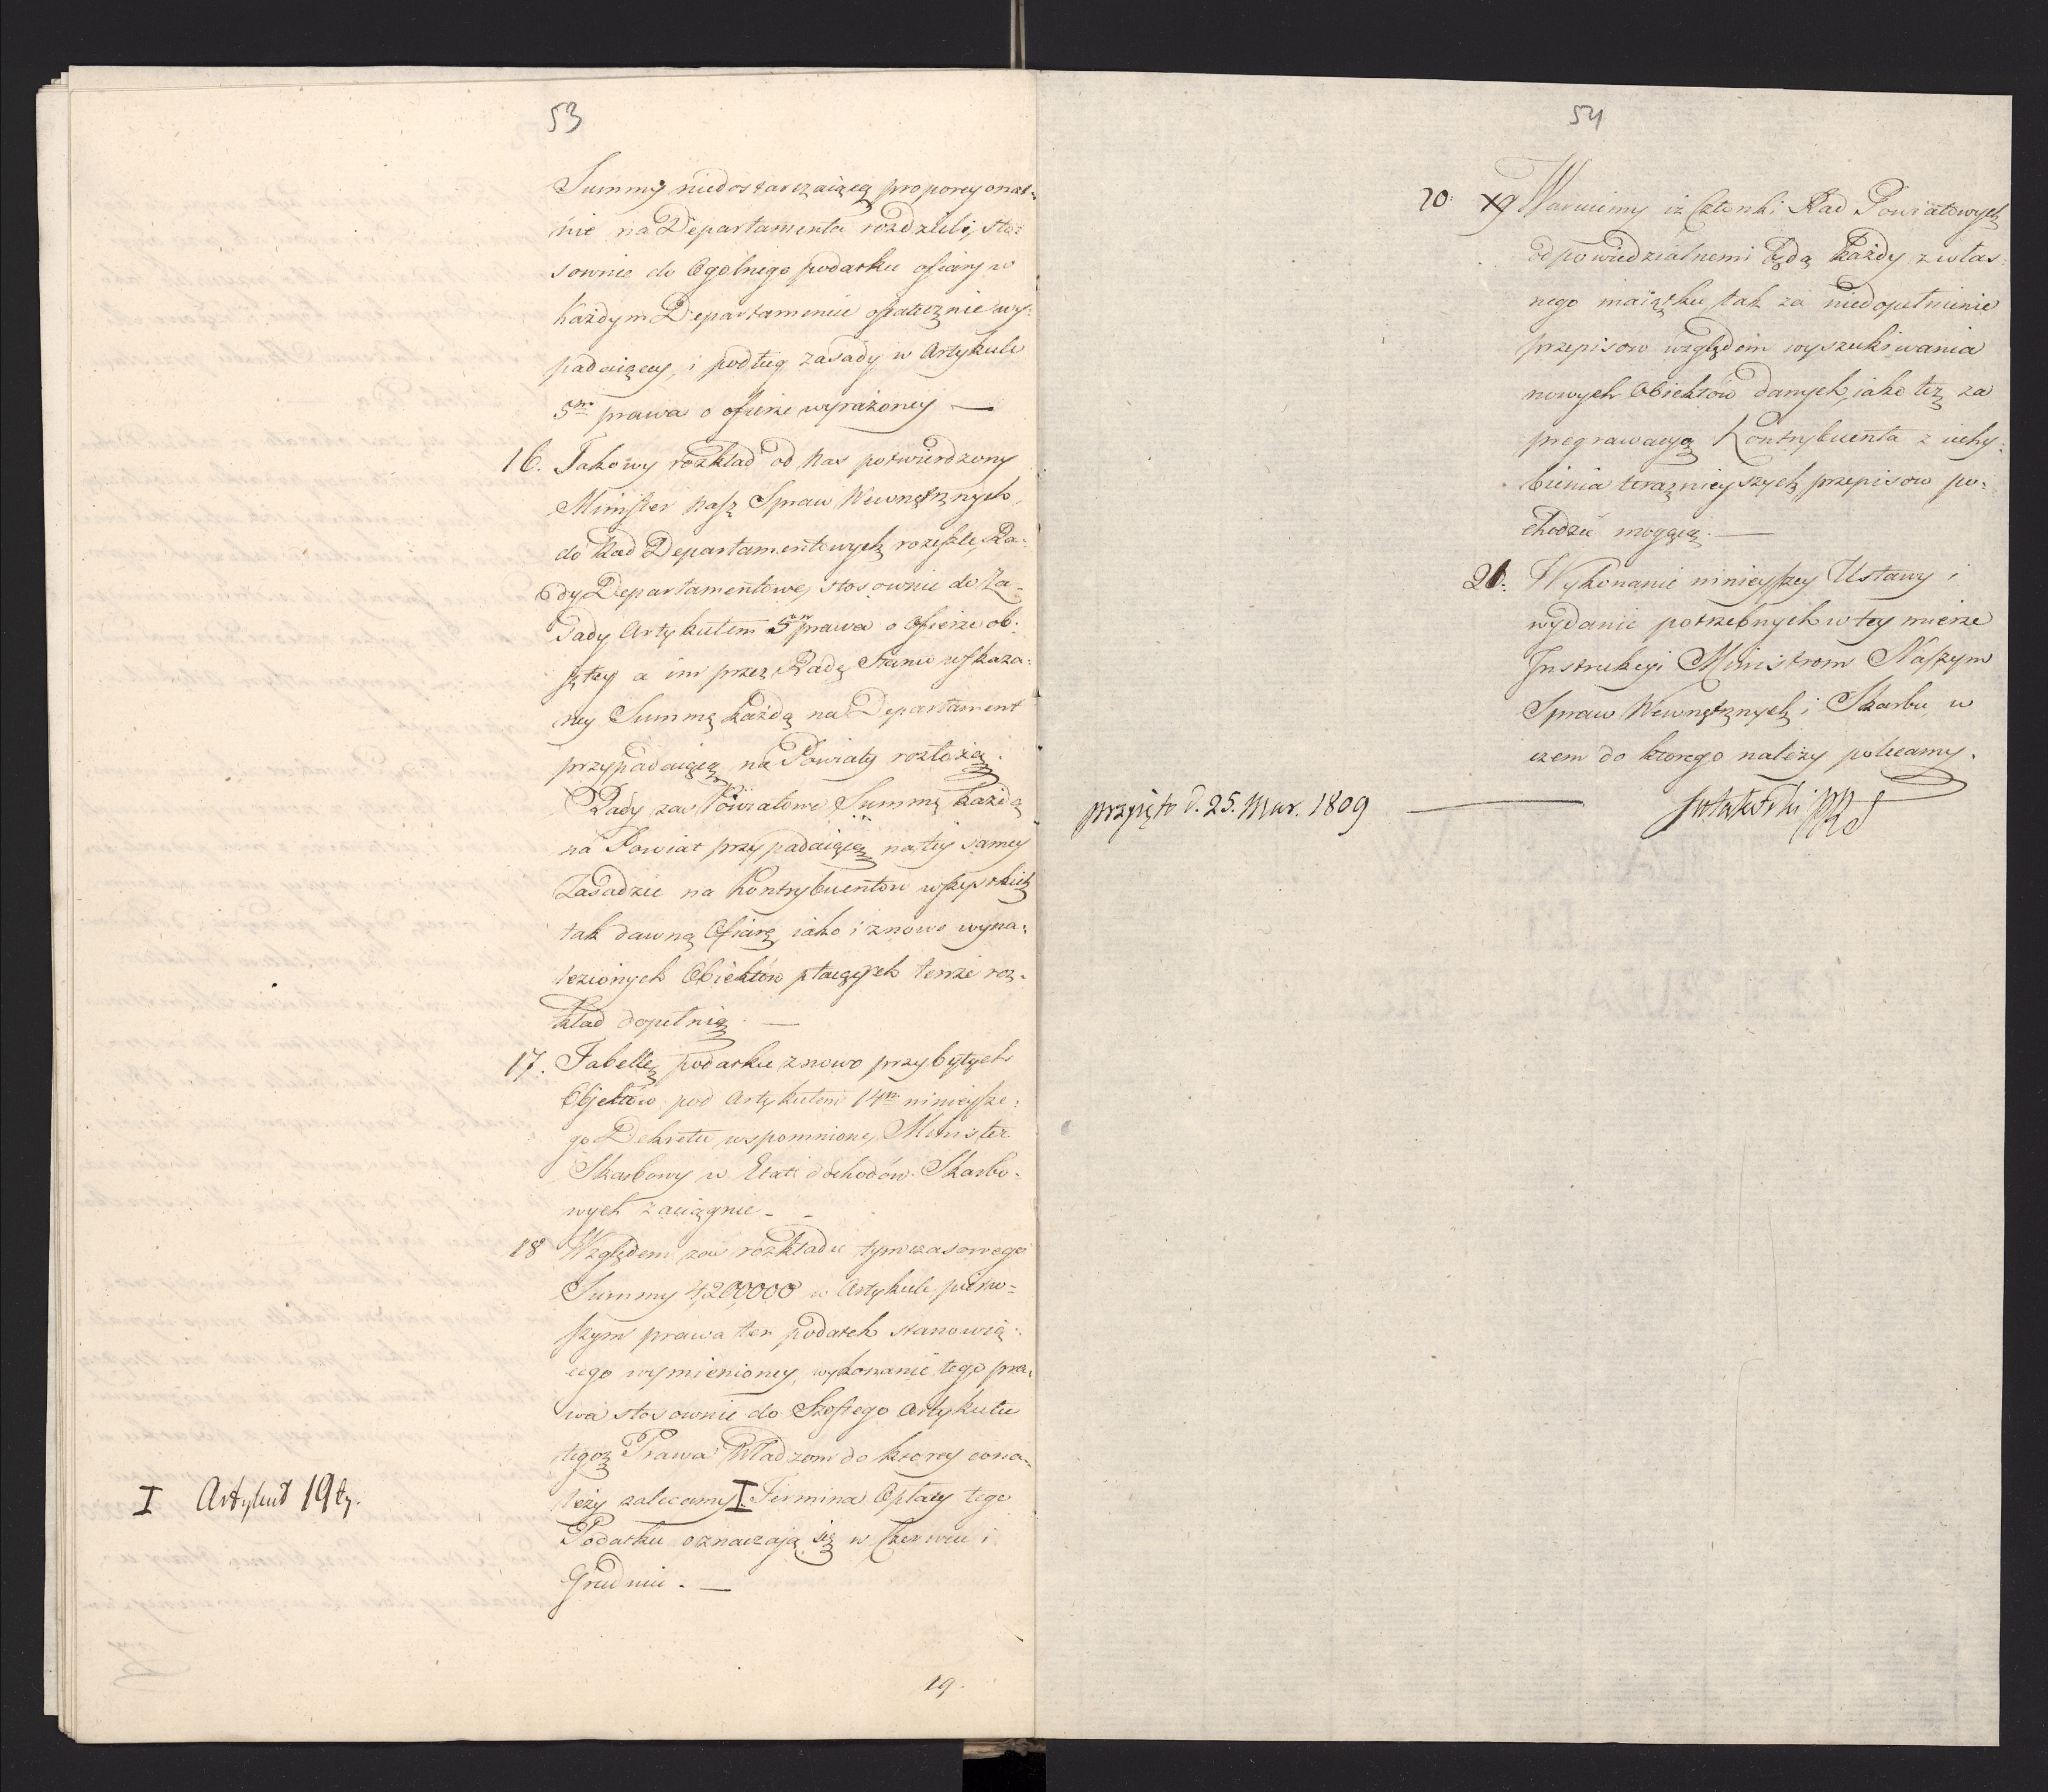 53
Summy niedostarczaiącą proporcyonal-
nie na Departamenta rozdzieli, sto-
sownie do Ogolnego podatku ofiary w
każdym Departamencie ostatecznie wy-
padaiącey, i podług zasady w Artykule
5m prawa o ofierze wyrażoney —
16. Takowy rozkład od Nas potwierdzony
Minister Nasz Spraw Wewnętrznych
do Rad Departamentowych rozeszle, Ra-
dy Departamentowe, stosownie do Za-
sady Artykułem 5m prawa o Ofierze ob-
iętey a im przez Radę Stanu wskaza-
ney Summę każdą na Departament
przypadaiącą na Powiaty rozłożą.
Rady zaś Powiatowe Summę każdą
na Powiat przypadaiącą na tey samey
Zasadzie na Kontrybuentow wszystkich
tak dawną Ofiarę, iako i znowo wyna-
lezionych Obiektów płacących tenże roz-
kład dopełnią. —
17. Tabellę podatku znowo przybyłych
Objektów pod Artykułem 14m ninieysze-
go Dekretu wspomnioną Minister
Skarbowy w Etat dochodów Skarbo-
wych zaciągnie - -
18 Względem zaś rozkładu tymczasowego
Summy 4,200,000 w Artykule pierw-
szym prawa ten podatek stanowią-
cego wymienioney, wykonanie tego pra-
wa stosownie do Szostego Artykułu
tegoż Prawa Władzom do ktorey cona-
leży zalecamy I Termina Opłaty tego
Podatku oznaczają się w Czerwcu i
Grudniu. —
I Artykuł 19ty.
19.
54
20. 19 Warujemy iż Członki Rad Powiatowych
odpowiedzialnemi będą każdy z włas-
nego maiątku tak za niedopełnienie
przepisow względem wyszukiwania
nowych Obiektów danych, iako też za
pregrawacyą Kontrybuenta z uchy-
bienia teraznieyszych przepisow po-
chodzić mogącą. —
21. Wykonanie ninieyszey Ustawy i
wydanie potrzebnych w tey mierze
Instrukcyi Ministrom Naszym
Spraw Wewnętrznych i Skarbu, w
czem do ktorego należy polecamy.
przyięto d. 25. Mar. 1809 —